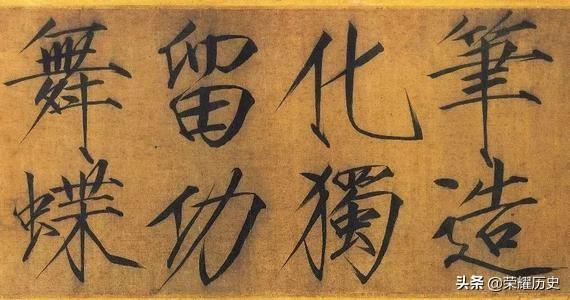 筆造
化獨
留功
舞蝶
头条 @荣耀历史